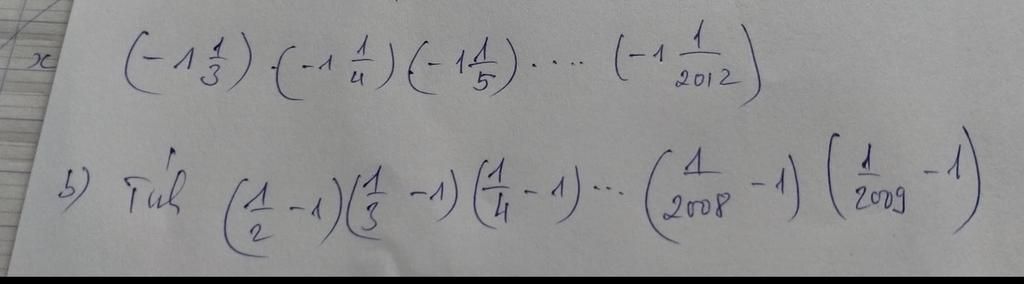 x (-1 1/3) . (-1 1/4) (-1 1/5) .... (-1 1/2012)
b) Tính (1/2 - 1) (1/3 - 1) (1/4 - 1) ... (1/2008 - 1) (1/2009 - 1)